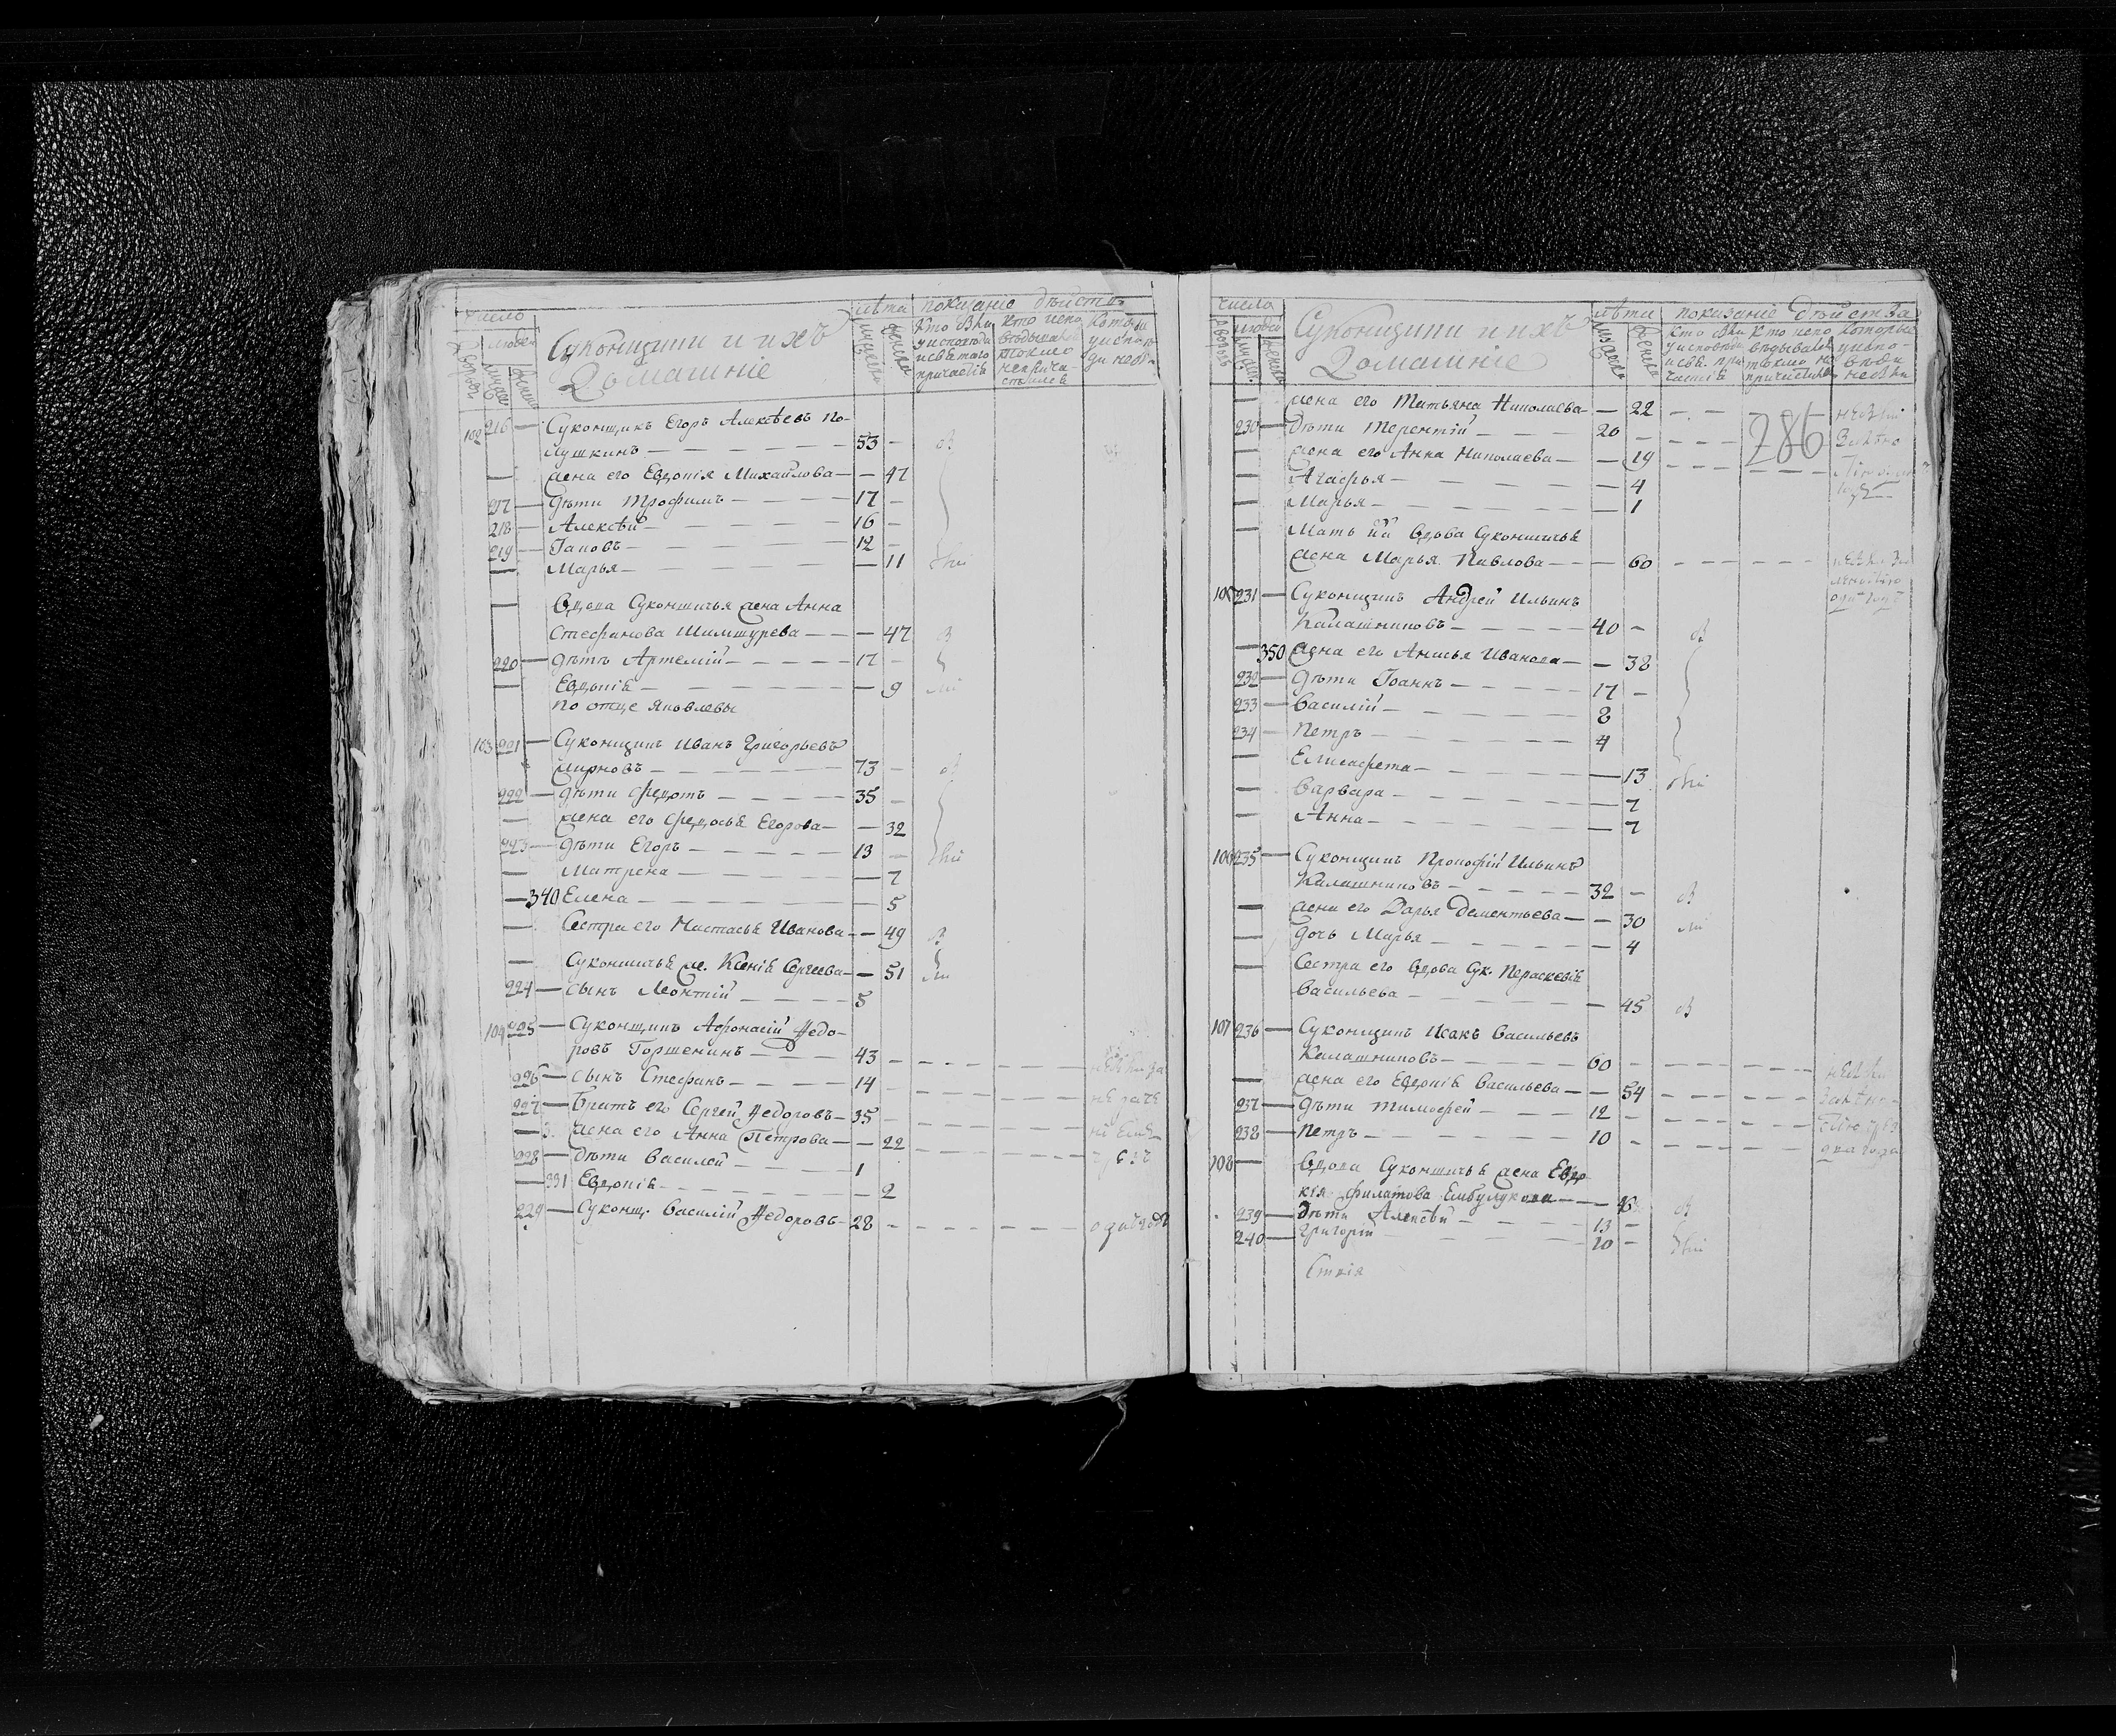 число
людей
Суконщики и ихъ
Домашніе
лѣта
показаніе дѣйств
Кто были
у исповѣди
и святаго
причастія
Кто испо
вѣдывался
токмо
неприча
стился
Которые
у испо
ди небы
102 216 — Суконщикъ Егоръ Алексѣевъ По-
лушкинъ — 53 —
жена его Евдокія Михайлова — — 47
217 — дѣти Трофимъ — 17 —
218 — Алексѣй — 16 —
219 — Іаковъ — 12 —
— Марья — — 11
— Вдова Суконщичья жена Анна
Стефанова — — 47
220 — дѣти Артемій — 17 —
— Евдокія — — 9
по отце Яковлевы
103 221 — Суконщикъ Иванъ Григорьевъ
Жирновъ — 73 —
222 — дѣти Федотъ — 35 —
— жена его Федосья Егорова — — 32
223 — дѣти Егоръ — 13 —
— Матрена — — 7
— 340 Елена — — 5
— Сестра его Настасья Иванова — — 49
— Суконщичья ж. Ксенія Сергеева — — 51
224 — сынъ Леонтій — 5
104 225 — Суконщикъ Афонасій Федо-
ровъ Горшенинъ — 43 —
226 — сынъ Стефанъ — 14 —
227 — братъ его Сергей Федоровъ — 35 —
— жена его Анна Петрова — — 22
228 — дѣти Василей — 1
— Евдокія — — 2
229 — Суконщ. Василій Федоровъ — 28 —
числа
людей
Суконщики и ихъ
Домашніе
лѣта
показаніе дѣйства
Кто были
у исповѣди
и св. при
частія
Кто испо
вѣдывался
токмо не
причастился
Которые
у испо-
вѣди
небыли
— жена его Татьяна Николаева — — 22
286
230 — дѣти Терентій — 20 —
— жена его Анна Николаева — — 19
— Агафья — — 4
— Марья — — 1
— Мать ихъ вдова Суконщичья
жена Марья Павлова — — 60
105 231 — Суконщикъ Андрей Ильинъ
Калашниковъ — 40 —
— 350 жена его Анисья Иванова — — 38
232 — дѣти Іоаннъ — 17 —
233 — Василій — 8
234 — Петръ — 4
— Елисафета — — 13
— Варвара — — 7
— Анна — — 7
106 235 — Суконщикъ Прокофій Ильинъ
Калашниковъ — 32 —
— жена его Дарья Дементьева — — 30
— дочь Марья — — 4
— Сестра его вдова Сук. Параскевія
Васильева — — 45
107 236 — Суконщикъ Исакъ Васильевъ
Калашниковъ — 60 —
— жена его Евдокія Васильева — — 54
237 — дѣти Тимофей — 12 —
238 — Петръ — 10 —
108 — Вдова Суконщичья жена Евдо
кія Филатова
239 — дѣти Алексѣй — 13 —
240 — Григорій — 10 —